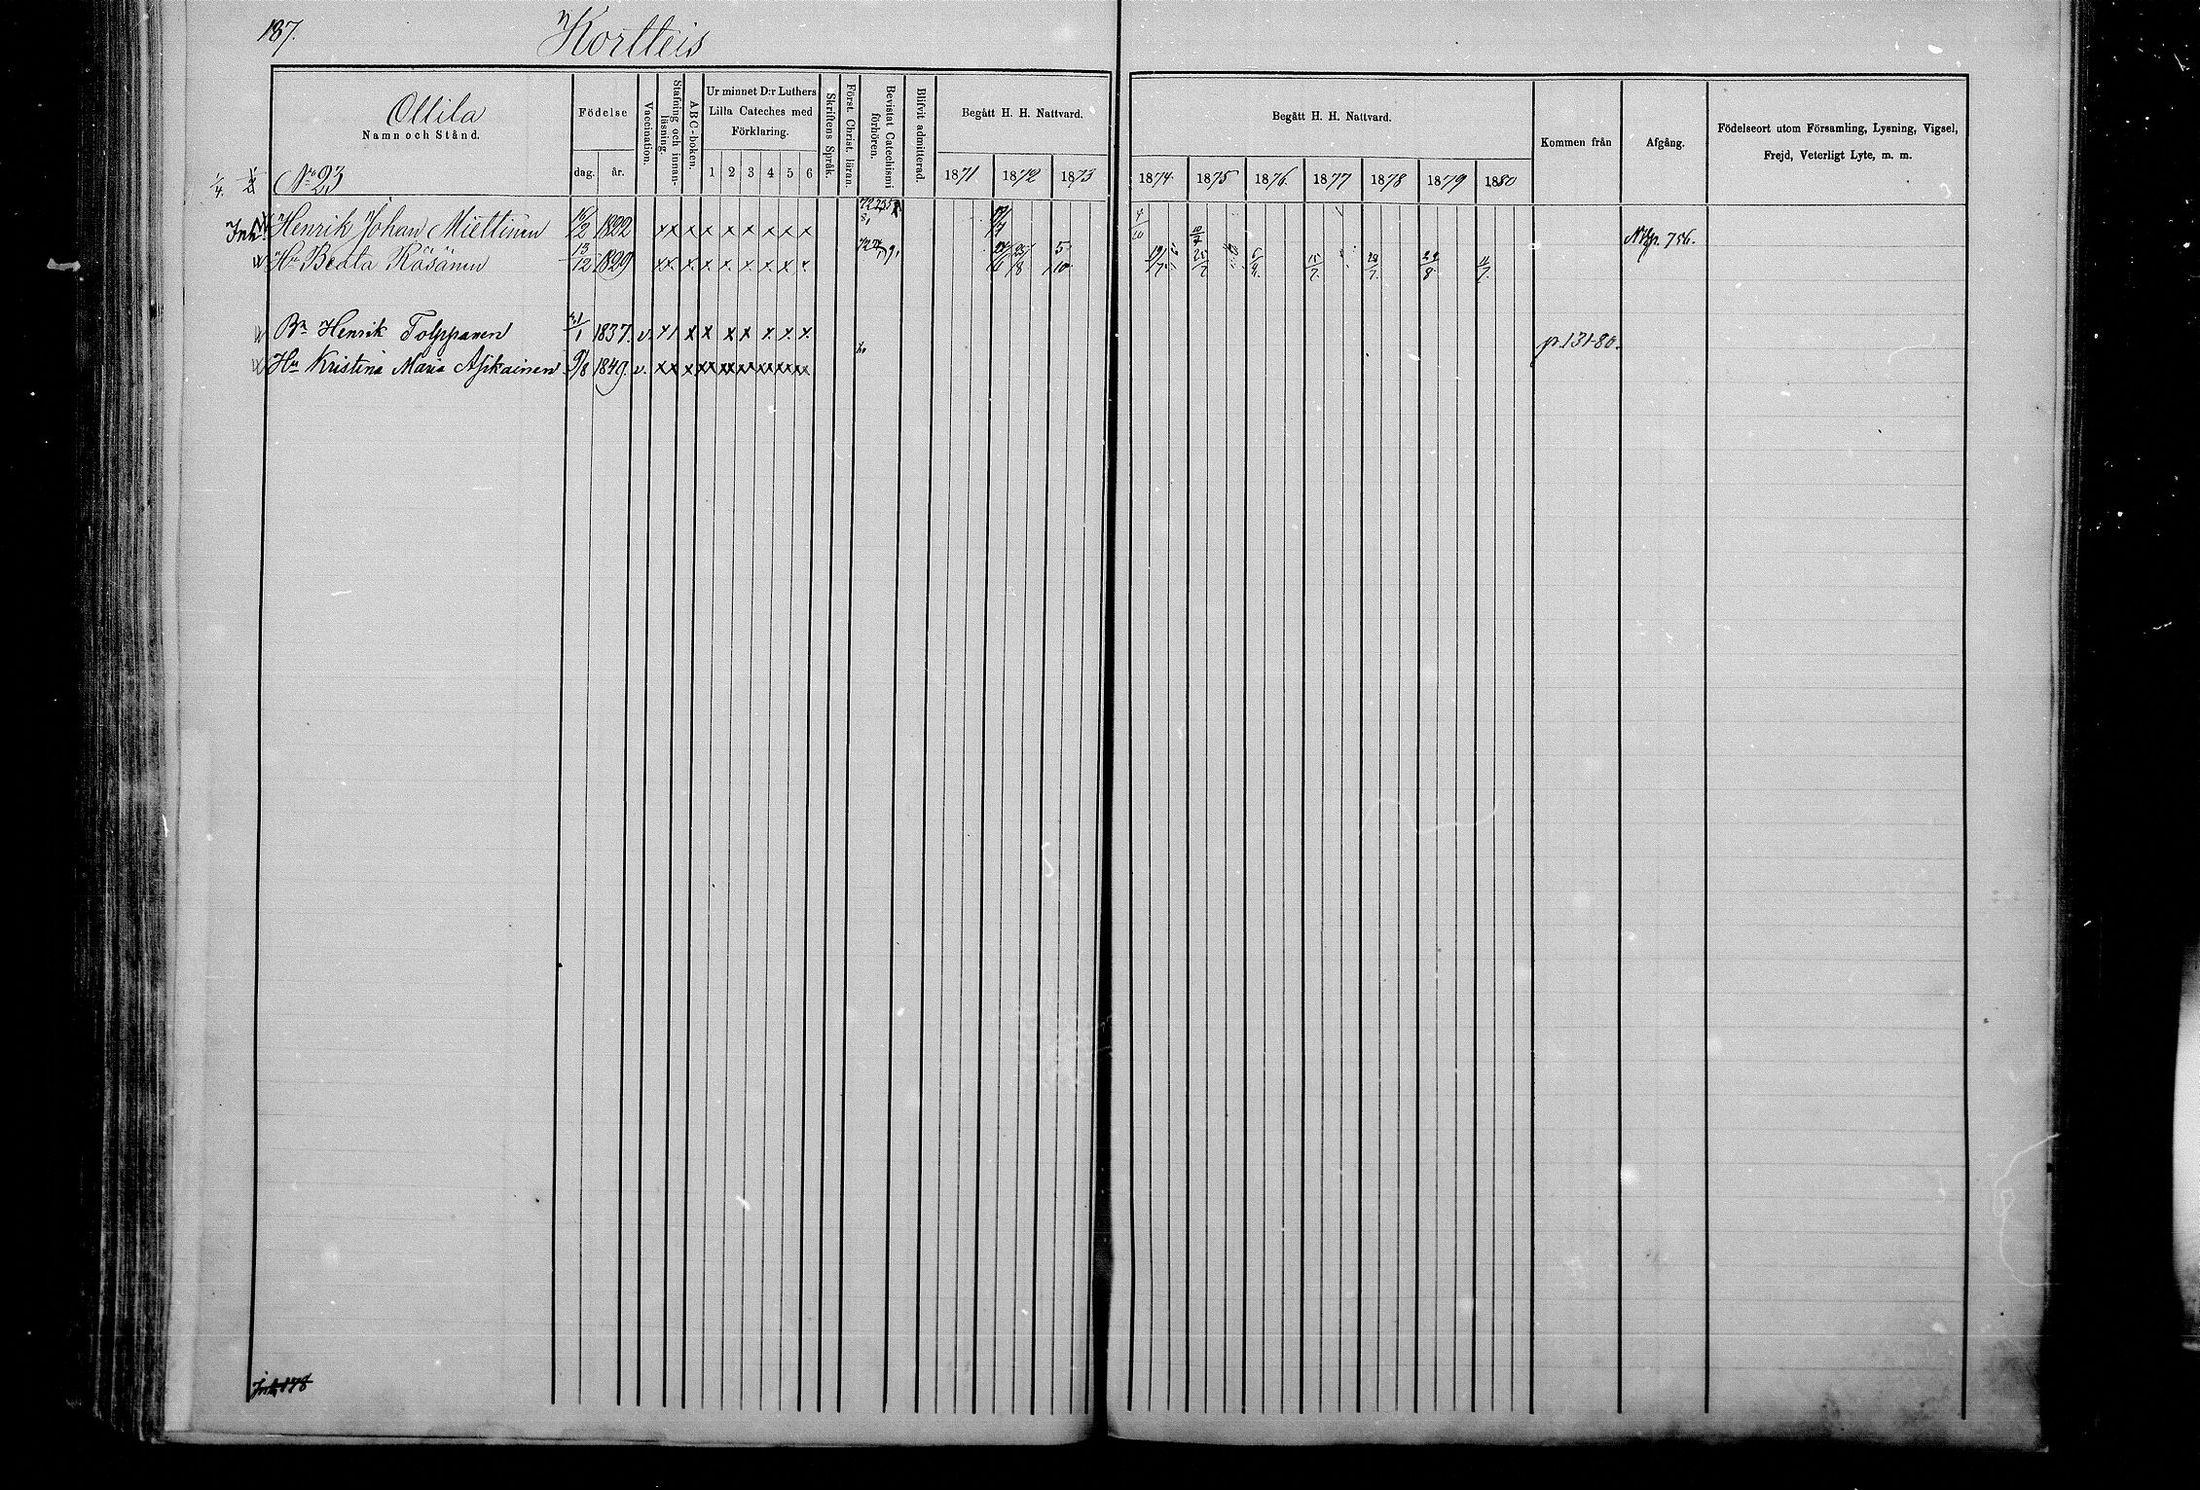 187.
Kortteis
Ollila
Namn och Stånd.
No 23
Födelse
dag.
år.
Vaccination.
Stafning och innanläsning.
ABC-boken.
Ur minnet D:r Luthers
Lilla Cateches med
Förklaring.
1 2 3 4 5 6
Skriftens Språk.
Först. Christ. läran.
Bevistat Catechismi
förhören.
Blifvit admitterad
Begått H. H. Nattvard.
1871 1872 1873
Begått H. H. Nattvard.
1874. 1875 1876. 1877 1878 1879 1880
Kommen från
Afgång.
Födelseort utom Församling, Lysning, Vigsel,
Frejd, Veterligt Lyte, m. m.
Henrik Johan Miettinen 1822 x x x x x x x x x
Hu Beata Räsänen 13/12 1829 x x x x x x x x x 5/10 15/7 29/8
Bn Henrik Tolppanen 1837. v. x x x x x x x x p. 131-80.
Hu Kristina Maria Asikainen 9/8 1849. v. xx x xx xx xx xx xx xx